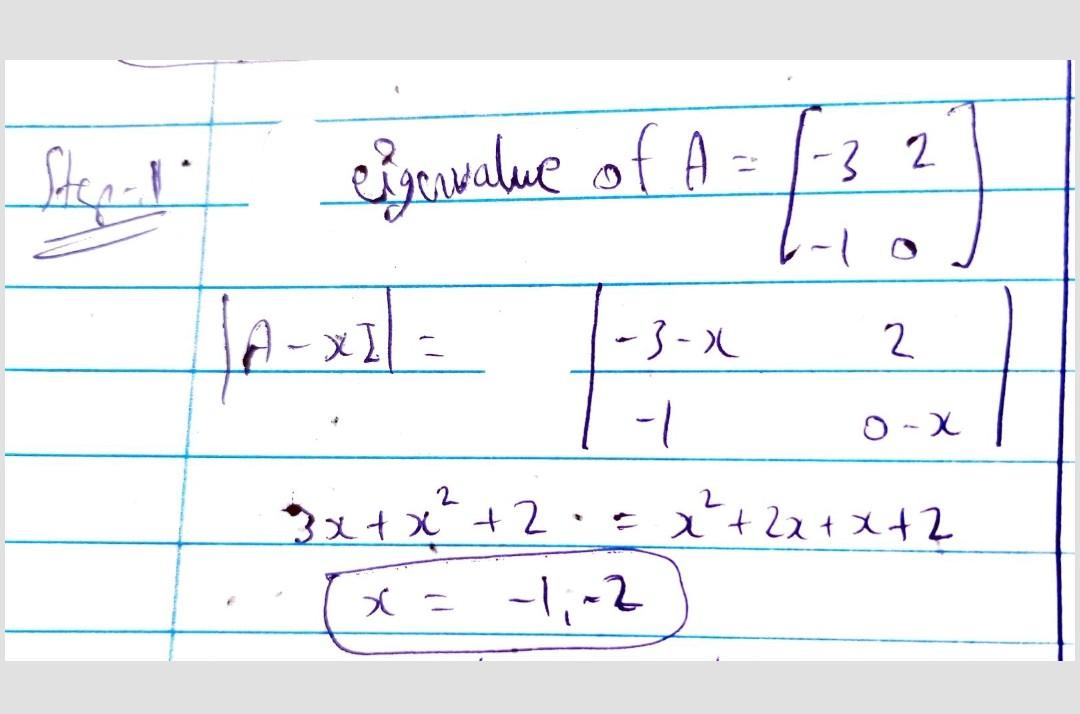 Step-1
eigenvalue of A = [-3 2
-1 0]
|A-xI| = |-3-x 2
-1 0-x|
3x+x²+2 = x²+2x+x+2
x = -1,-2